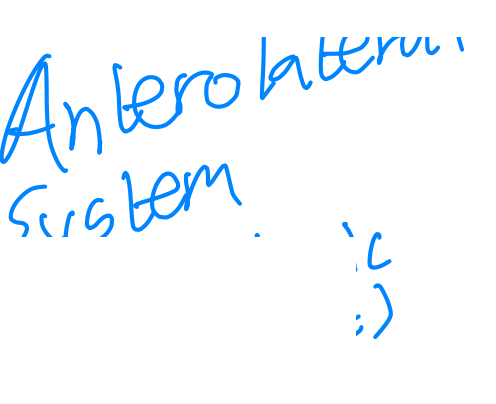 Anterolateral
system
:)